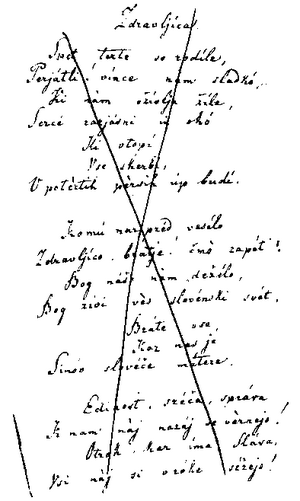 Zdravljica.
Spet terte so rodile,
Perjátli! vince nam sladkó,
Ki nám oživlja žile,
Sercé razjásni in okó
Ki otopí
Vse skerbi,
V potertih pérsih úp budí.
Komú narpréd veselo
Zdravljico, brátje! čmò zapét'!
Bog náš nám deželo,
Bog živi vès slovénski svét,
Bráte vse,
Kar nas je
Sinóv slovéče mátere.
Edinost, sréča, správa
K nam nàj nazáj se vèrnejo!
Otrók, kar ima Sláva,
Vsi náj si v róke séžejo!